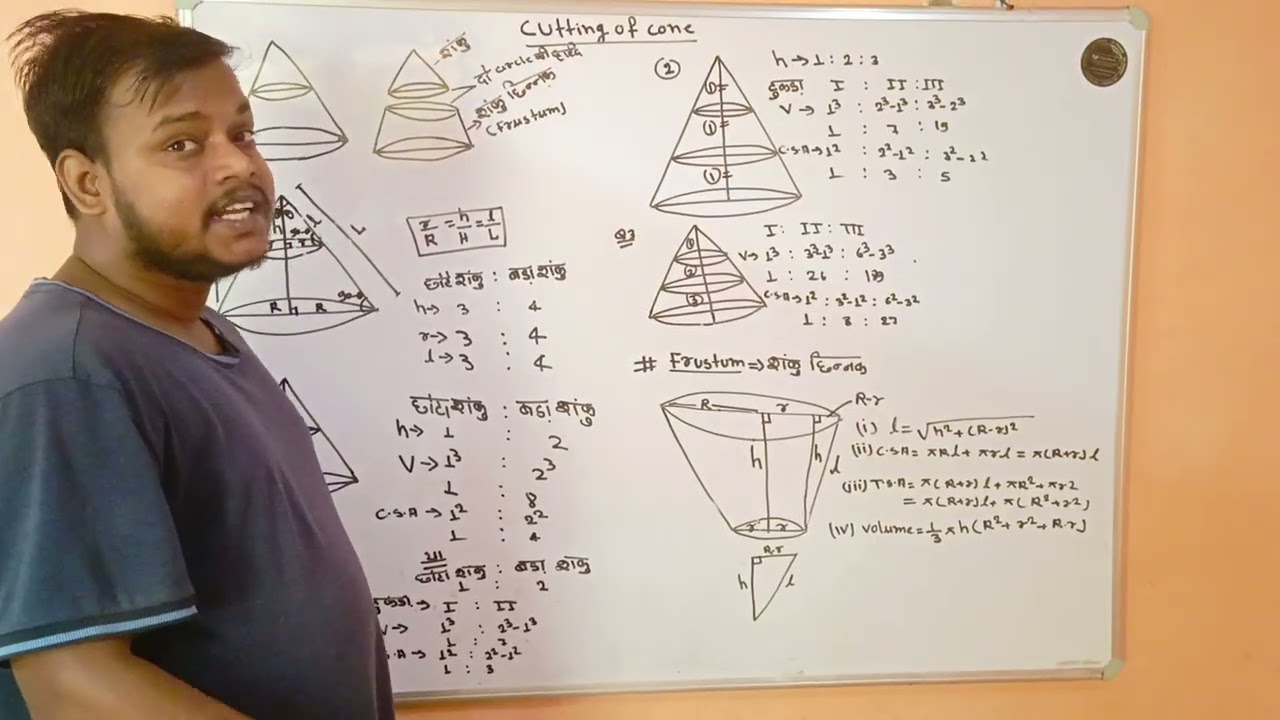 Cutting of cone
शंकु
दो circle की वृद्धि
शंकु छिन्नक
(Frustum)
h l L
r
90-θ
R R
90-θ
r/R = h/H = l/L
छोटे शंकु : बड़ा शंकु
h→ 3 : 4
r→ 3 : 4
l→ 3 : 4
छोटा शंकु : बड़ा शंकु
h→ 1 : 2
V→ 1³ : 2³
1 : 8
C.S.A→ 1² : 2²
1 : 4
या
छोटा शंकु : बड़ा शंकु
1 : 2
टुकड़ा → I : II
V→ 1³ : 2³-1³
1 : 7
S.A→ 1² : 2²-1²
1 : 3
②
① ① ①
h→ 1 : 2 : 3
टुकड़ा I : II : III
V→ 1³ : 2³-1³ : 3³-2³
1 : 7 : 19
C.S.A→ 1² : 2²-1² : 3²-2²
1 : 3 : 5
Q3
① ② ③
I : II : III
V→ 1³ : 3³-1³ : 6³-3³
1 : 26 : 189
C.S.A→ 1² : 3²-1² : 6²-3²
1 : 8 : 27
# Frustum ⇒ शंकु छिन्नक
R r R-r
h h l
r r
R-r
h l
(i) l = √h²+(R-r)²
(ii) C.S.A = πRl + πrl = π(R+r)l
(iii) T.S.A = π(R+r)l + πR² + πr²
= π(R+r)l + π(R²+r²)
(iv) Volume = 1/3 πh(R²+r²+R.r)